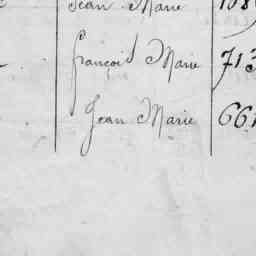 Jean Marie 108
François Marie 713
Jean Marie 661